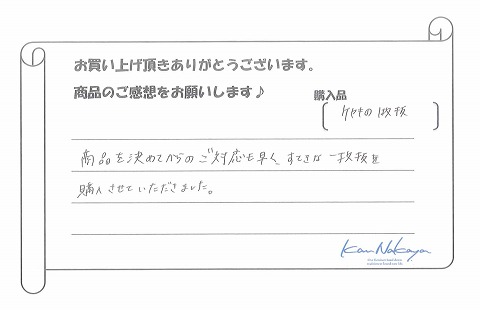 お買い上げ頂きありがとうございます。
商品のご感想をお願いします♪
購入品
ケヤキの1枚板
商品を決めてからのご対応も早く、すてきな一枚板を
購入させていただきました。
Kan Nakaya